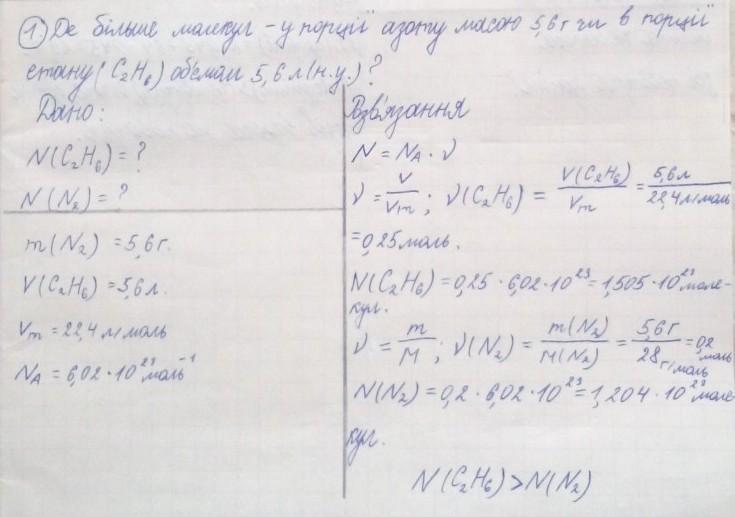 1) Де більше молекул - у порції азоту масою 5,6 г чи в порції
етану (C₂H₆) об'ємом 5,6 л (н.у.)?
Дано:
N(C₂H₆) = ?
N(N₂) = ?
m(N₂) = 5,6 г.
V(C₂H₆) = 5,6 л.
Vm = 22,4 л/моль
NA = 6,02 · 10²³ моль⁻¹
Розв'язання
N = NA · ν
ν = V/Vm ; ν(C₂H₆) = V(C₂H₆)/Vm = 5,6 л/22,4 л/моль
= 0,25 моль.
N(C₂H₆) = 0,25 · 6,02 · 10²³ = 1,505 · 10²³ моле-
кул.
ν = m/M ; ν(N₂) = m(N₂)/M(N₂) = 5,6 г/28 г/моль = 0,2 моль
N(N₂) = 0,2 · 6,02 · 10²³ = 1,204 · 10²³ моле-
кул.
N(C₂H₆) > N(N₂)